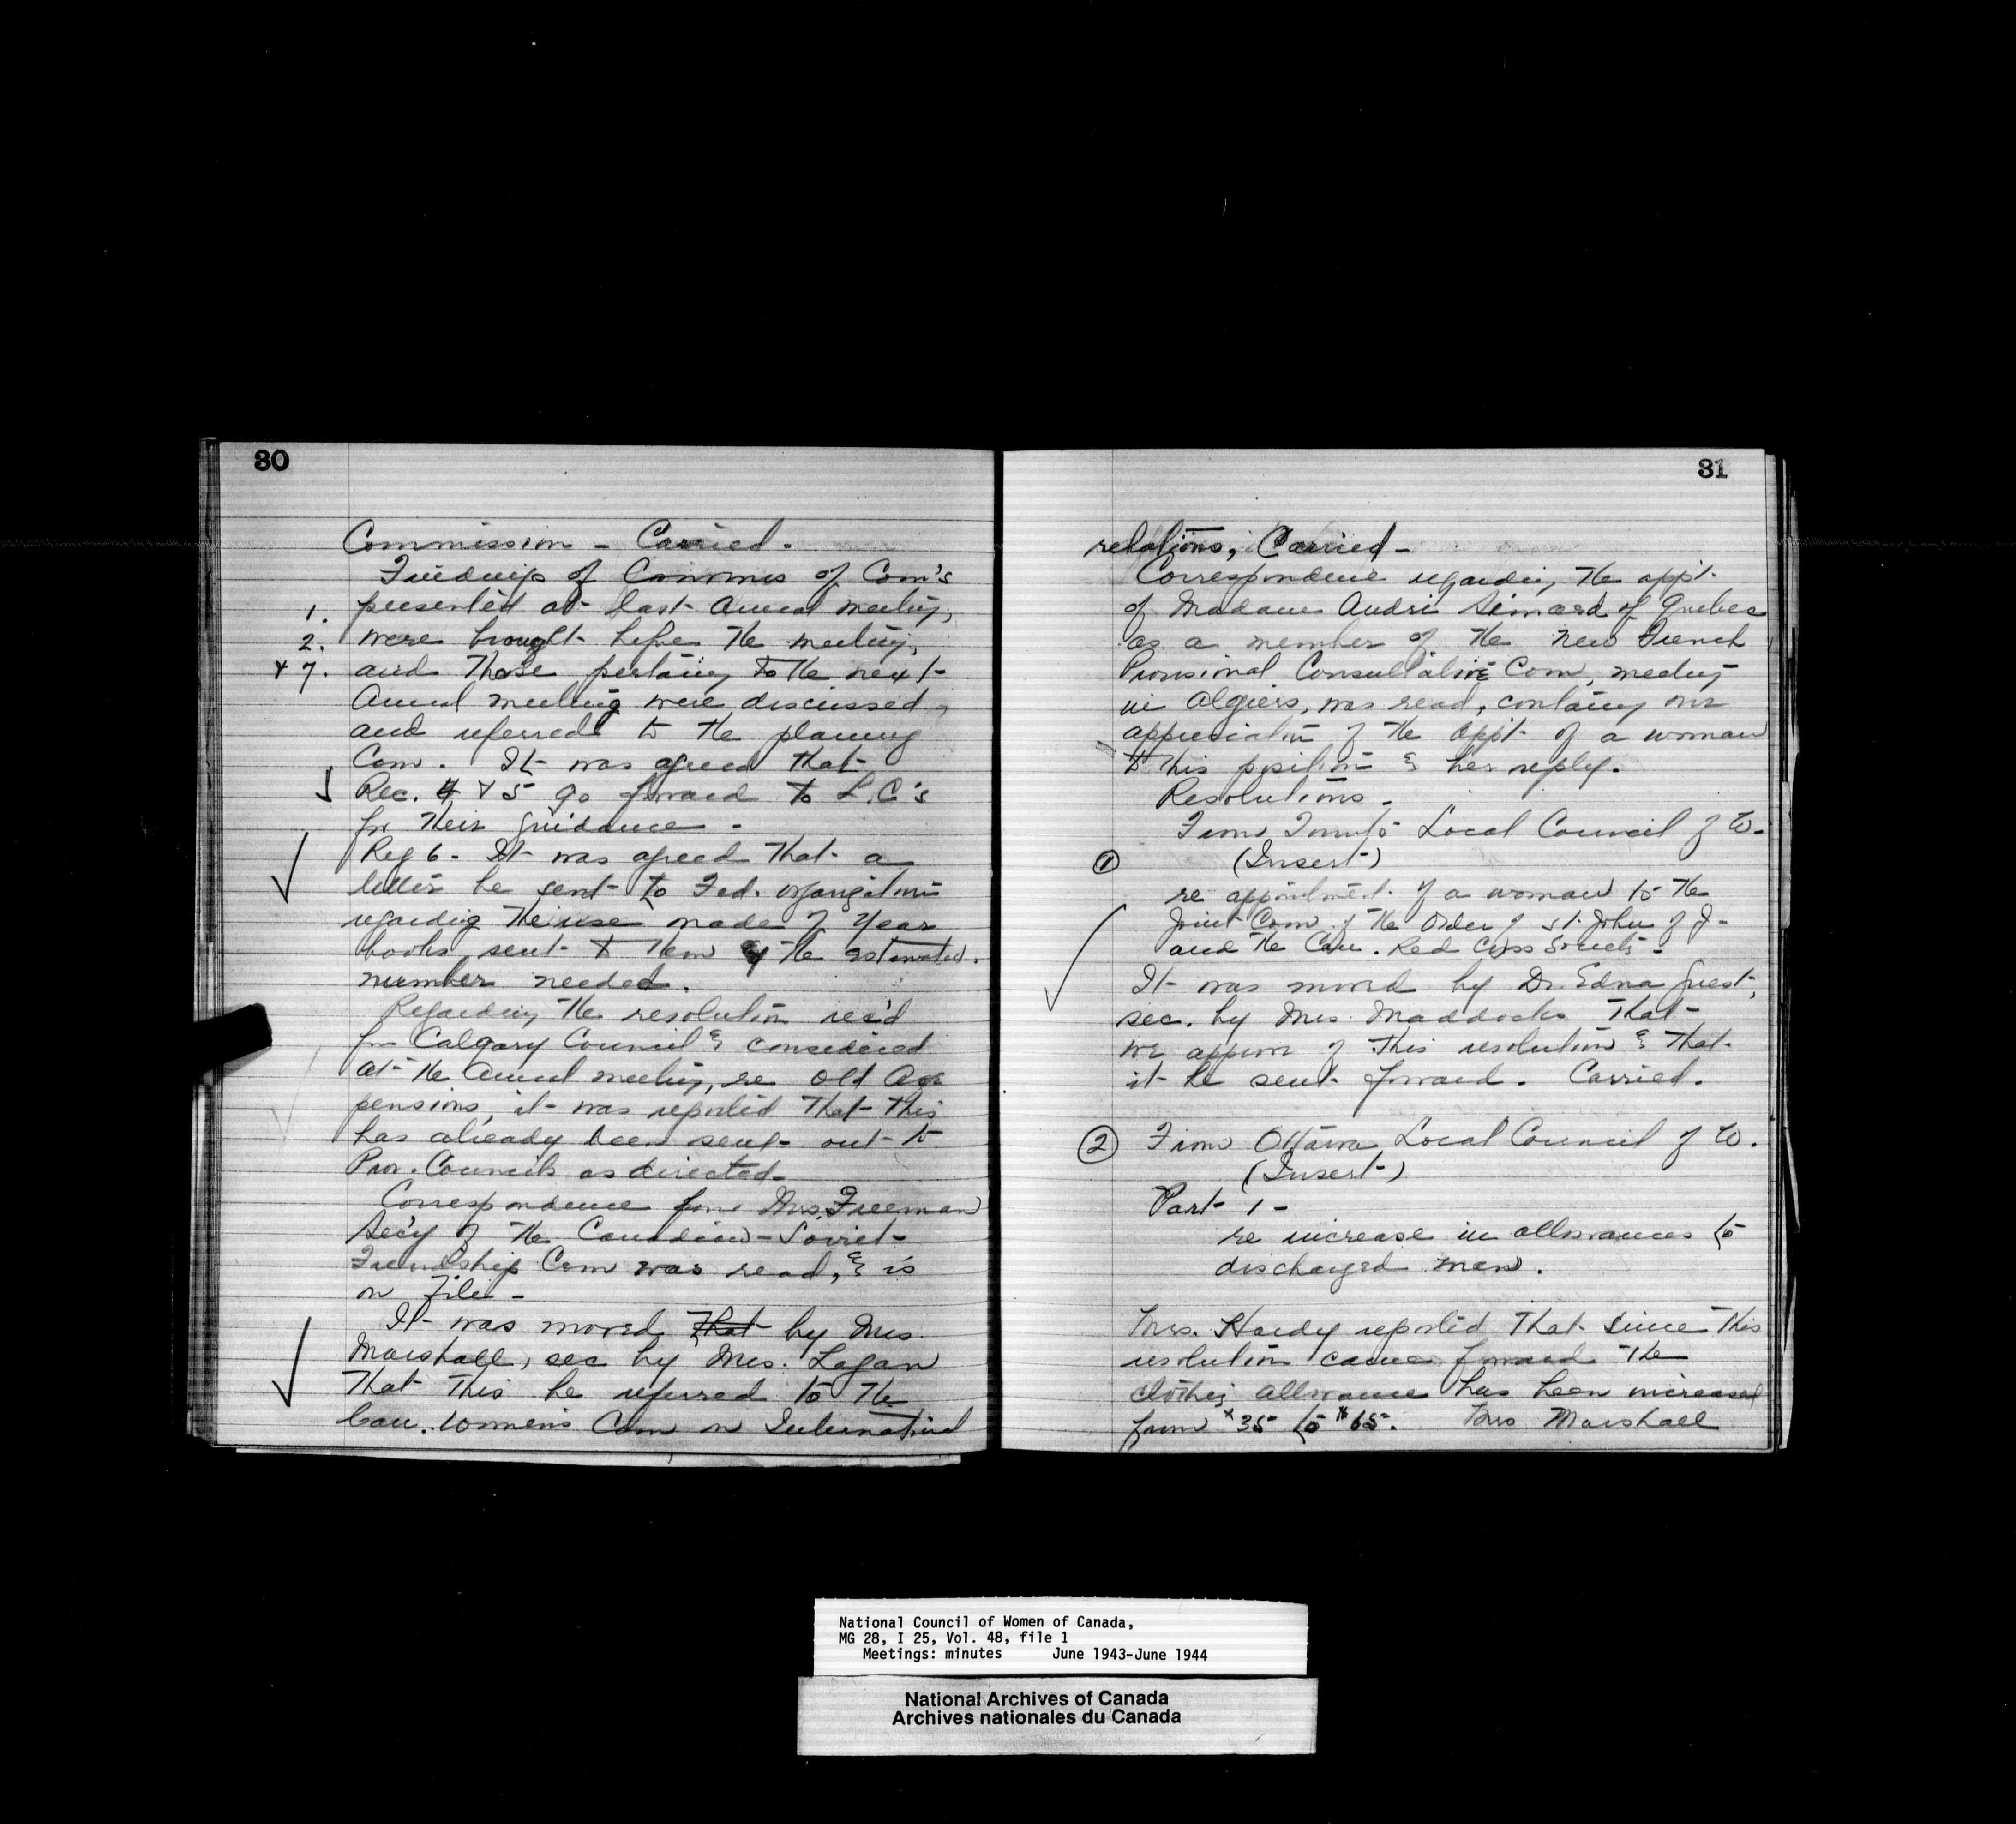 30
Commission - Carried.
Findings of Convenors of Com's
1. presented at last Annual meeting,
2. were brought before the meeting,
& 7. and those pertaining to the next
Annual meeting were discussed,
and referred to the planning
Com. It was agreed that
Rec. 4 & 5 go forward to L.C's
for their guidance -
Reg 6 - It was agreed that a
letter be sent to Fed. organizations
regarding the use made of Year
books sent to them & the estimated
number needed.
Regarding the resolution rec'd
from Calgary Council & considered
at the Annual meeting, re Old Age
pensions, it was reported that this
has already been sent out to
Prov. Councils as directed -
Correspondence from Mrs. Freeman
Sec'y of the Canadian-Soviet
Friendship Com was read, & is
on file -
It was moved that by Mrs.
Marshall, sec by Mrs. Logan
that this be referred to the
Can. Women's Com on International
31
relations, Carried -
Correspondence regarding the app't
of Madam Andre Simard of Quebec
as a member of the new French
Provisional Consultative Com, meeting
in Algiers, was read, containing our
appreciation of the app't of a woman
to this position & her reply.
Resolutions -
From Toronto Local Council of W.
① (Insert)
re appointment of a woman to the
Joint Com. of the Order of St. John of J -
and the Can. Red Cross Society -
It was moved by Dr. Edna Guest,
sec. by Mrs. Maddocks that
we approve of this resolution & that
it be sent forward. Carried.
② From Ottawa Local Council of W.
(Insert)
Part 1 -
re increase in allowances to
discharged men.
Mrs. Hardy reported that since this
resolution came forward the
clothing allowance has been increased
from $35 to $65. Mrs Marshall
National Council of Women of Canada,
MG 28, I 25, Vol. 48, file 1
Meetings: minutes June 1943-June 1944
National Archives of Canada
Archives nationales du Canada